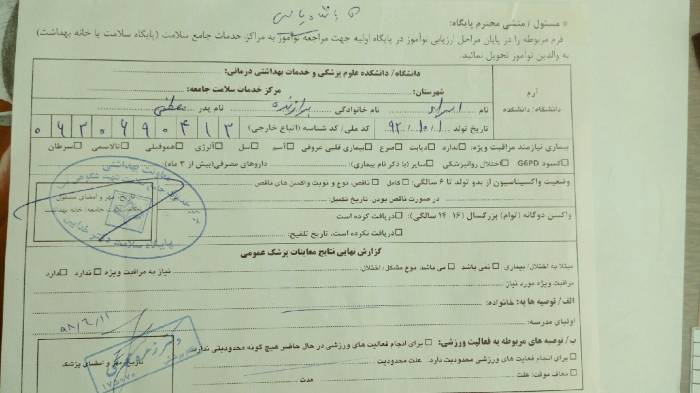 * مسئول / منشی محترم پایگاه:
فرم مربوطه را در پایان مراحل ارزیابی نوآموز در پایگاه اولیه جهت مراجعه نوآموز به مراکز خدمات جامع سلامت (پایگاه سلامت یا خانه بهداشت)
به والدین نوآموز تحویل نمائید.
آرم
دانشگاه/ دانشکده
دانشگاه/ دانشکده علوم پزشکی و خدمات بهداشتی درمانی:
شهرستان: مرکز خدمات سلامت جامعه:
نام اسرا نام خانوادگی برازنده نام پدر مصطفی
تاریخ تولد ۹۲/۱۰/۱ کد ملی/ کد شناسه (اتباع خارجی)
بیماری نیازمند مراقبت ویژه: ☐ندارد ☐دیابت ☐صرع ☐بیماری قلبی عروقی ☐آسم ☐سل ☐آلرژی ☐هموفیلی ☐تالاسمی ☐سرطان
☐کمبود G6PD ☐اختلال روانپزشکی ☐سایر (با ذکر نام بیماری): داروهای مصرفی(بیش از ۳ ماه)
وضعیت واکسیناسیون از بدو تولد تا ۶ سالگی: ☐ کامل ☐ ناقص، نوع و نوبت واکسن های ناقص
در صورت ناقص بودن تاریخ تکمیل:
واکسن دوگانه (توام) بزرگسال (۱۶-۱۴ سالگی): ☐دریافت کرده است
☐دریافت نکرده است، تاریخ تلقیح:
تاریخ، مهر و امضای مسئول
معاونت بهداشتی
گزارش نهایی نتایج معاینات پزشک عمومی
مبتلا به اختلال/ بیماری ☐ نمی باشد ☐ می باشد. نوع مشکل/ اختلال: نیاز به مراقبت ویژه ☐ ندارد ☐دارد
مراقبت ویژه مورد نیاز
الف/ توصیه ها به: خانواده:
اولیای مدرسه:
ب/ توصیه های مربوطه به فعالیت ورزشی: ☐ برای انجام فعالیت های ورزشی در حال حاضر هیچ گونه محدودیتی ندارد
☐ برای انجام فعالیت های ورزشی محدودیت دارد. علت محدودیت
☐ معاف موقت: علت مدت
تاریخ، مهر و امضای پزشک